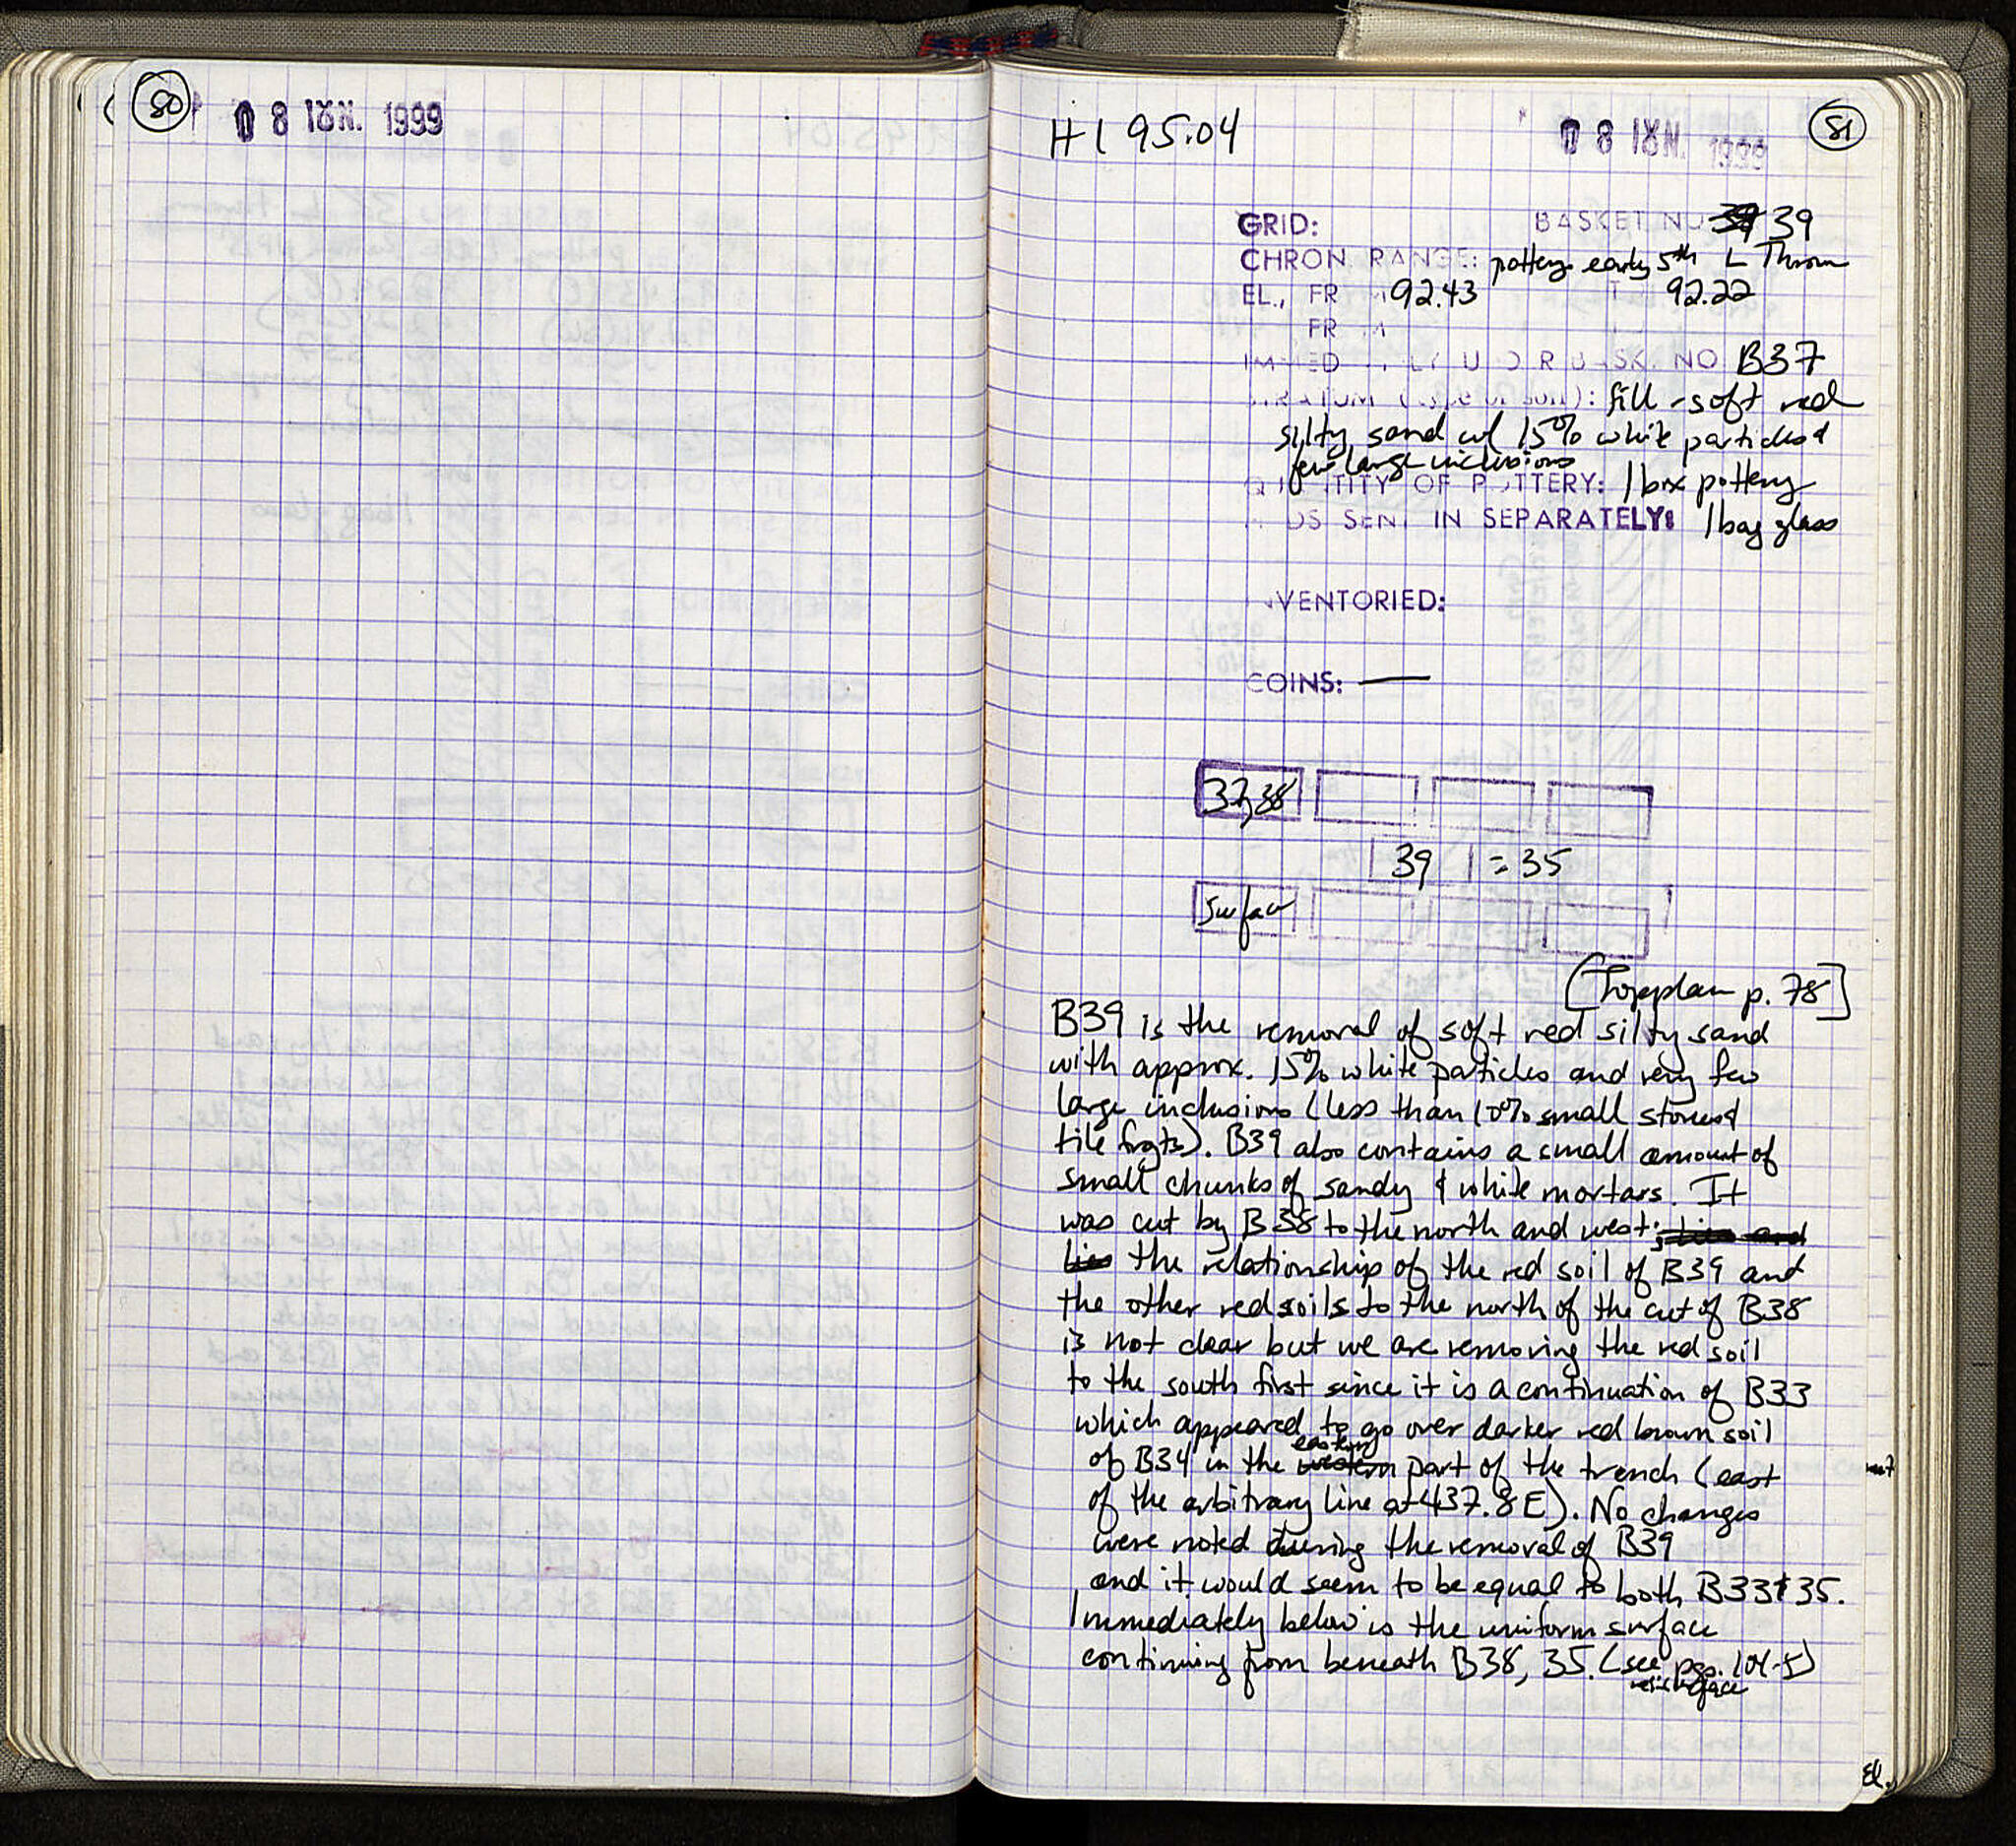 80
08 ΙΟΥΝ. 1999
H I 95.04
08 ΙΟΥΝ. 1999
81
GRID:
BASKET NO 39
CHRON RANGE: pottery early 5th L Throm
EL., FR M 92.43 T 92.22
FR M
IMMED LY U D R BASK. NO B37
STRATUM (      ): fill - soft red
silty sand w/ 15% white particles &
few large inclusions
QU NTITY OF POTTERY: 1 box pottery
DS SENT IN SEPARATELY: 1 bag glass
NVENTORIED:
COINS: —
37,38
39 = 35
Surface
[Topplan p. 78]
B39 is the removal of soft red silty sand
with approx. 15% white particles and very few
large inclusions (less than 10% small stones &
tile frgts). B39 also contains a small amount of
small chunks of sandy & white mortars. It
was cut by B38 to the north and west;
lies the relationship of the red soil of B39 and
the other red soils to the north of the cut of B38
is not clear but we are removing the red soil
to the south first since it is a continuation of B33
which appeared to go over darker red brown soil
of B34 in the western eastern part of the trench (east
of the arbitrary line at 437.8 E). No changes
were noted during the removal of B39
and it would seem to be equal to both B33 & 35.
Immediately below is the uniform surface
continuing from beneath B38, 35. (see pgs. 104-5)
surface